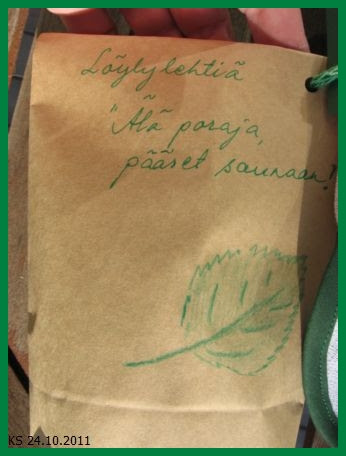 Löylylehtiä
"Älä poraja,
pääset saunaan!
KS 24.10.2011